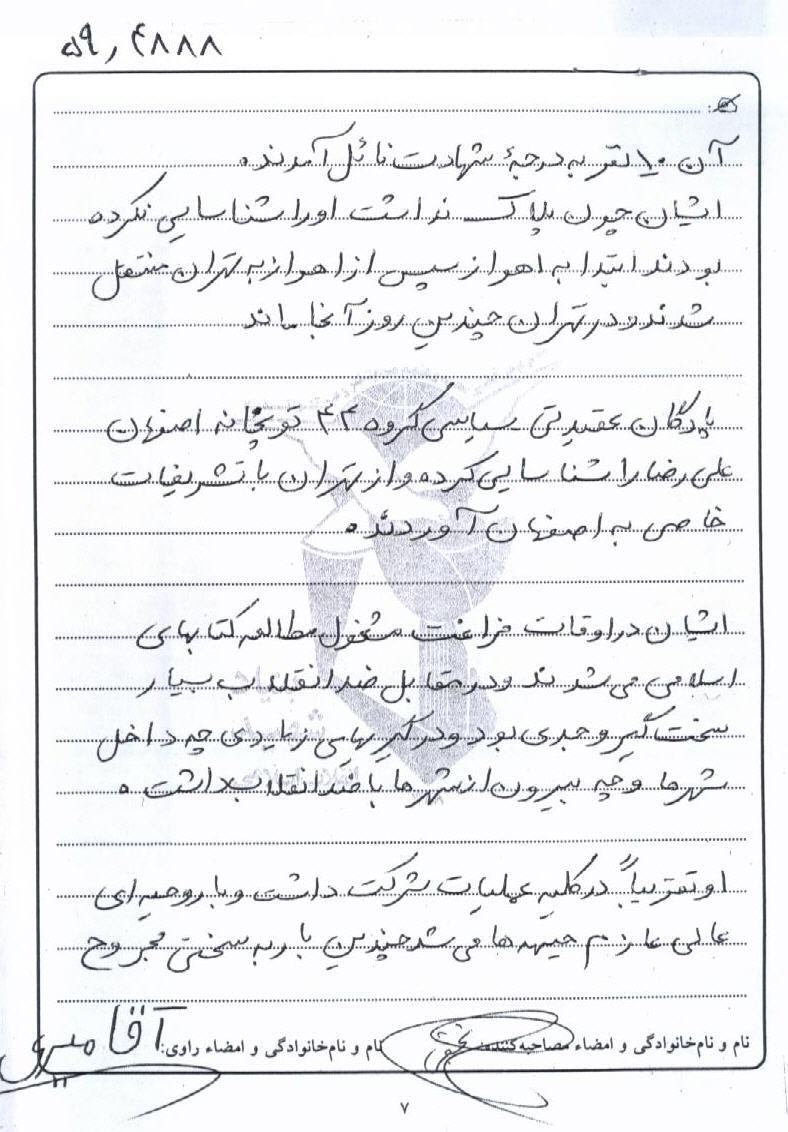 ۵۹,۴۸۸۸
آن ۱۰ نفر به درجهٔ شهادت نائل آمدند.
ایشان چون پلاک نداشت او را شناسایی نکرده
بودند ابتدا به اهواز سپس از اهواز به تهران منتقل
شدند و در تهران چندین روز آنجا ماند
پادگان عقیدتی سیاسی گروه ۴۴ توپخانه اصفهان
علی رضا را شناسایی کرده و از تهران با تشریفات
خاصی به اصفهان آوردند.
ایشان در اوقات فراغت مشغول مطالعه کتابهای
اسلامی می شدند و در مقابل ضد انقلاب بسیار
سخت گیر و جدی بود و درگیریهایی زیادی چه داخل
شهرها و چه بیرون از شهرها با ضد انقلاب داشت.
او تقریباً در کلیه عملیات شرکت داشت و با روحیه ای
عالی عازم جبهه ها می شد چندین بار به سختی مجروح
نام و نام‌خانوادگی و امضاء مصاحبه‌کننده:
نام و نام‌خانوادگی و امضاء راوی: آقا
۷